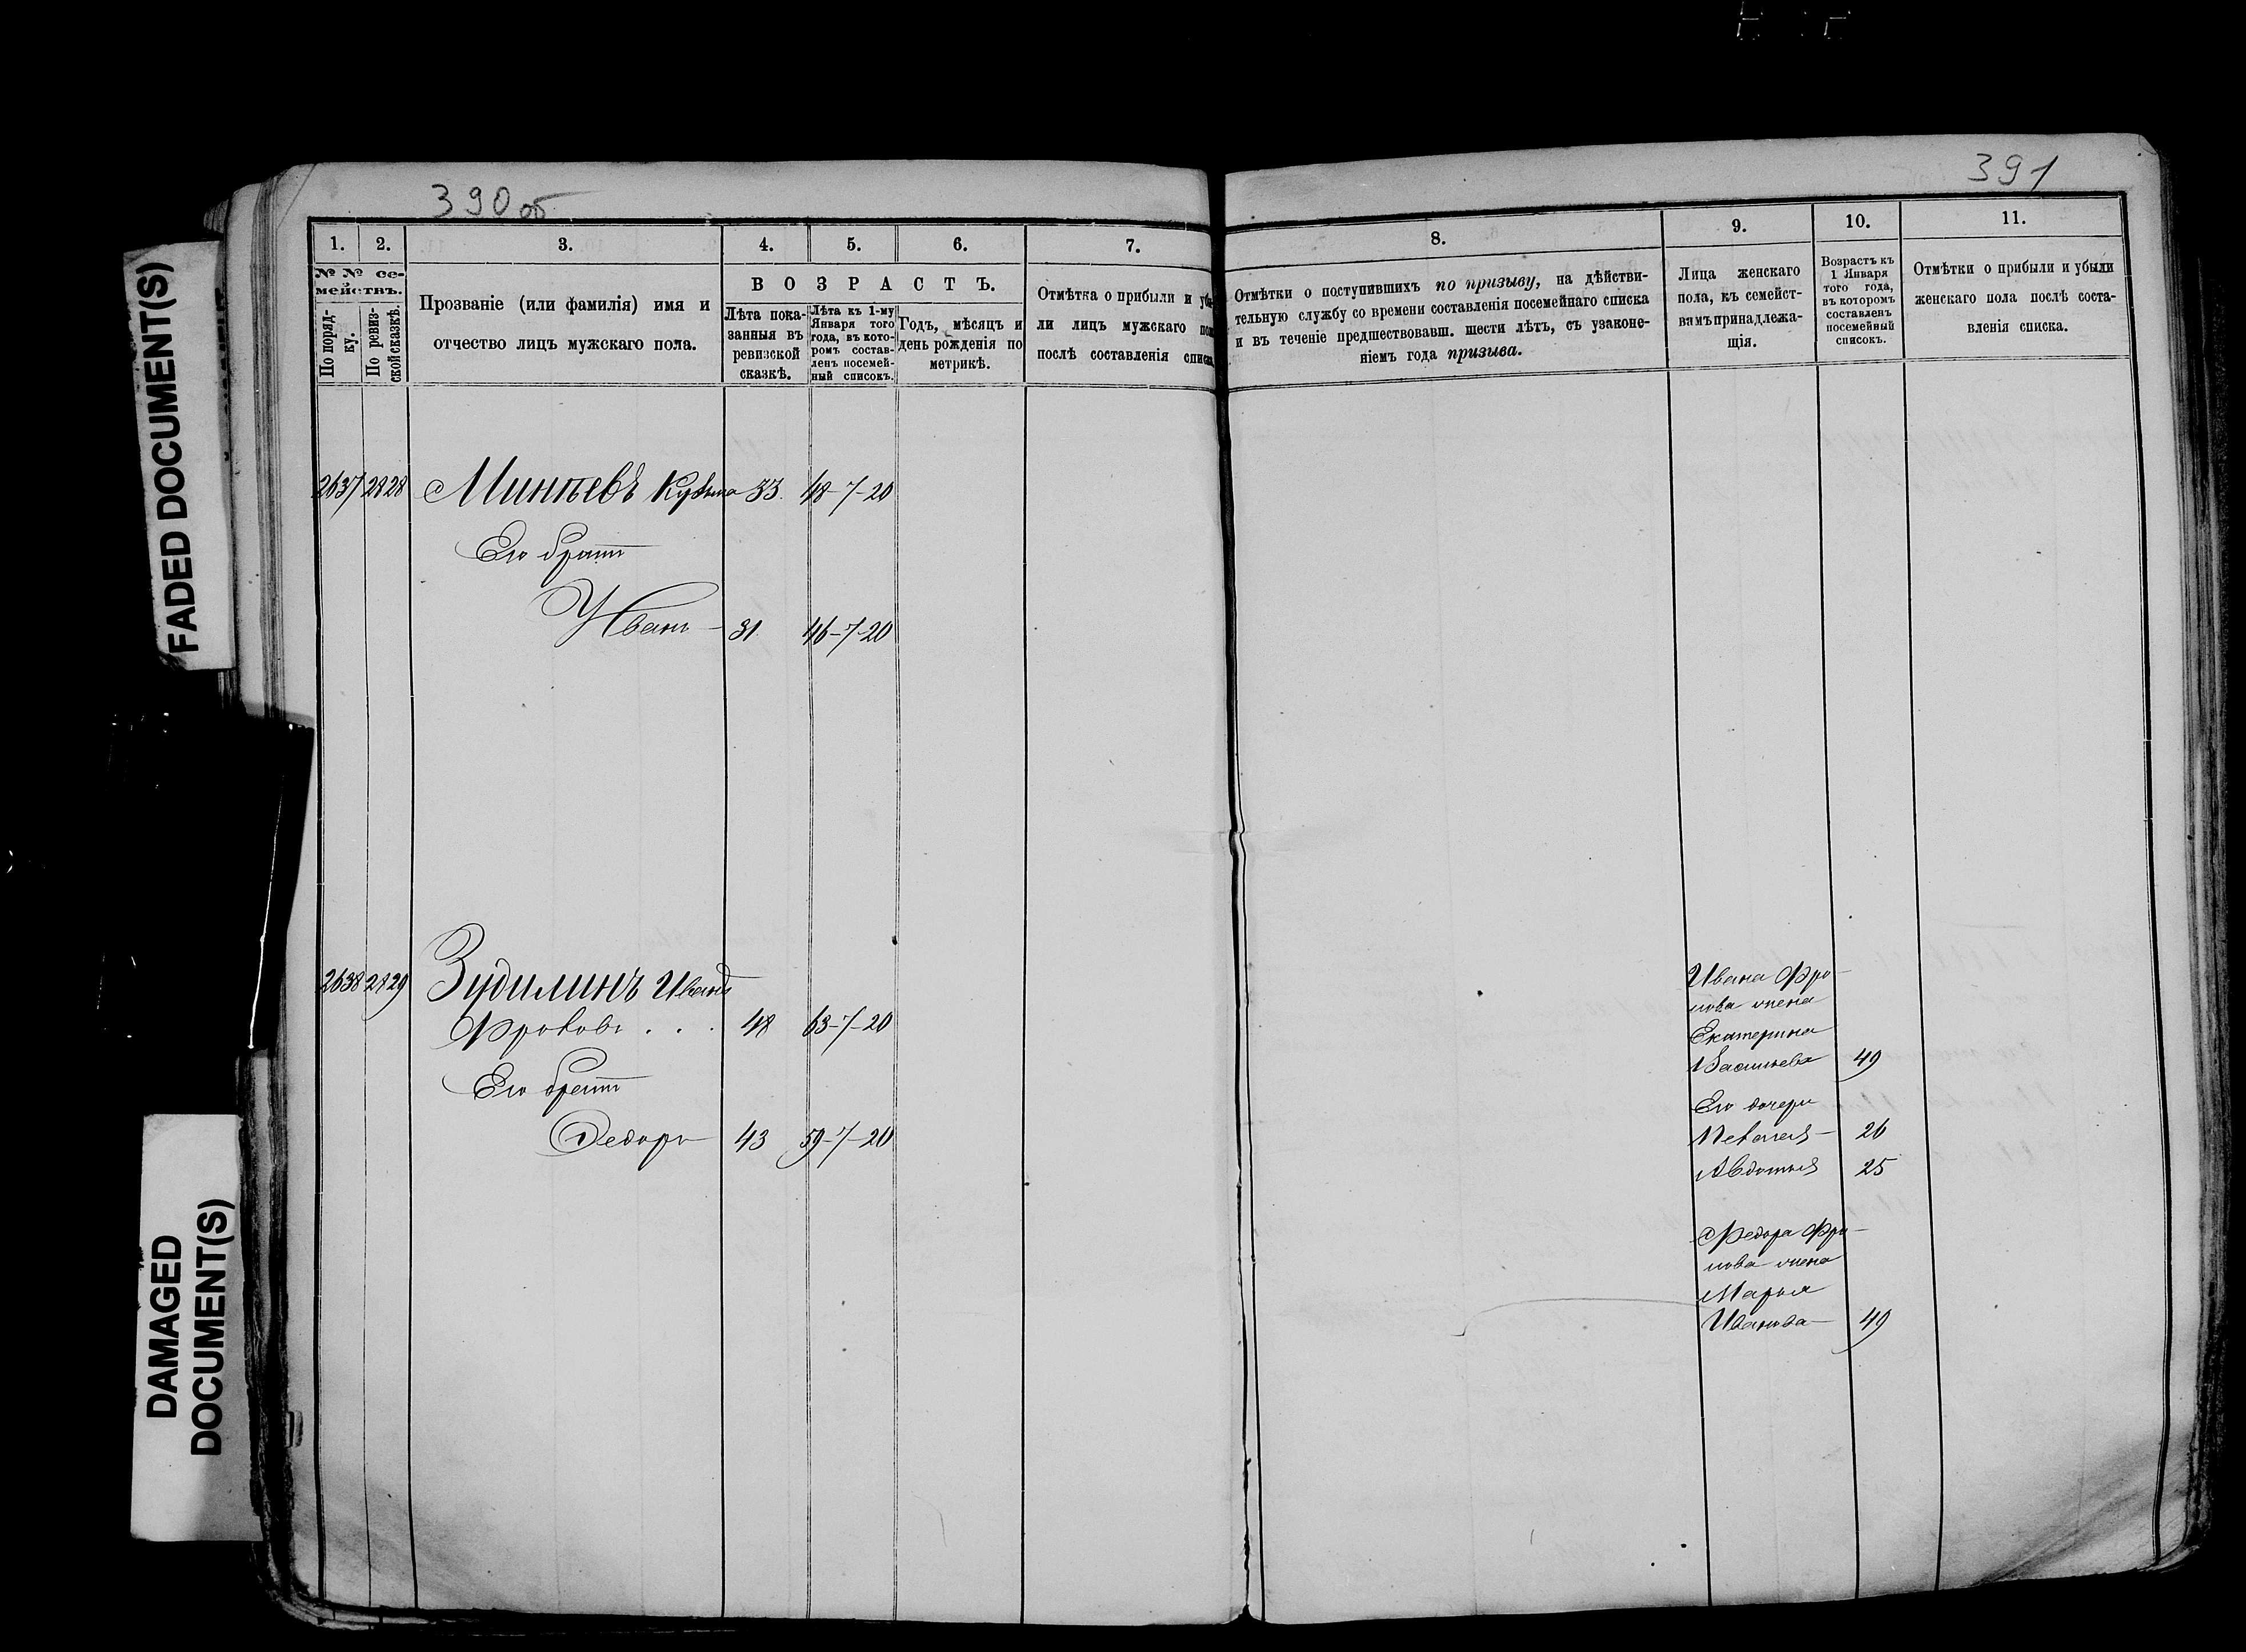 FADED DOCUMENT(S)
DAMAGED
DOCUMENT(S)
390 об
1.
2.
3.
4.
5.
6.
7.
№ № се-
мействъ.
По поряд-
ку.
По ревиз-
ской сказкѣ.
Прозваніе (или фамилія) имя и
отчество лицъ мужскаго пола.
ВОЗРАСТЪ.
Лѣта пока-
занныя въ
ревизской
сказкѣ.
Лѣта къ 1-му
Января того
года, въ кото-
ромъ состав-
ленъ посемей-
ный списокъ.
Годъ, мѣсяцъ и
день рожденія по
метрикѣ.
Отмѣтка о прибыли и убы-
ли лицъ мужскаго пола
послѣ составленія списка
2637 2828 Минѣевъ Кузьма 33. 48-7-20
Его братъ
Иванъ — 31. 46-7-20
2638 2829 Зудилинъ Иванъ
Фроловъ . . . 48 63-7-20
Его братъ
Федоръ 43 59-7-20
391
8.
9.
10.
11.
Отмѣтки о поступившихъ по призыву, на дѣйстви-
тельную службу со времени составленія посемейнаго списка
и въ теченіе предшествовавш. шести лѣтъ, съ узаконе-
ніемъ года призыва.
Лица женскаго
пола, къ семейст-
вамъ принадлежа-
щія.
Возрастъ къ
1 Января
того года,
въ которомъ
составленъ
посемейный
списокъ.
Отмѣтки о прибыли и убыли
женскаго пола послѣ соста-
вленія списка.
Ивана Фро-
лова жена
Екатерина
Васильева 49
Его дочери
26
Авдотья 25
Федора Фро-
лова жена
Марья
Иванова — 49